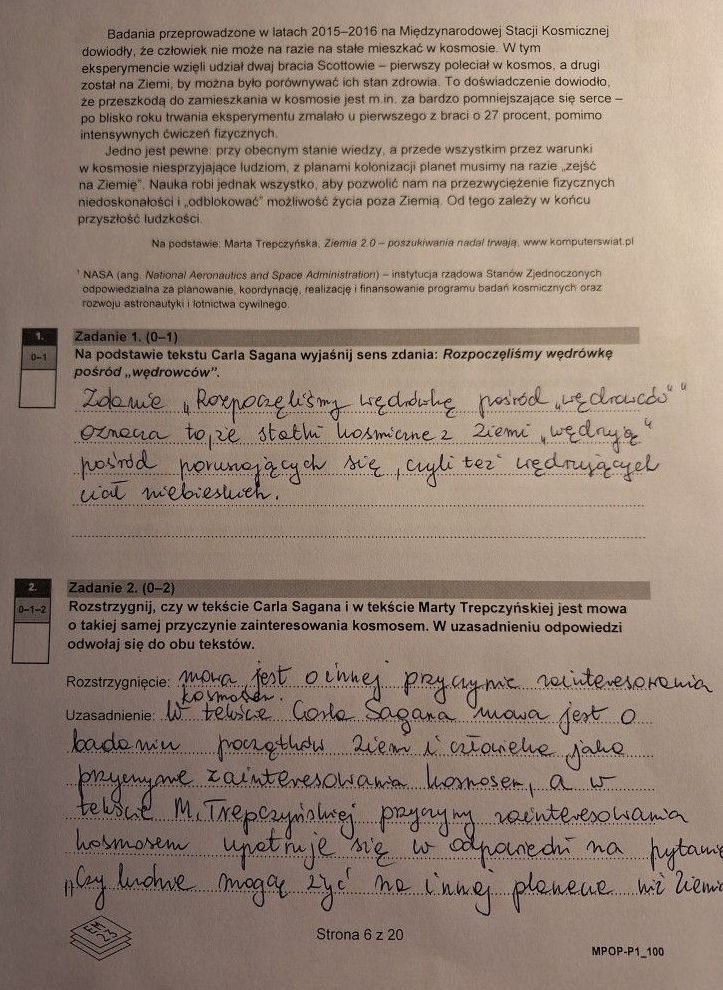 Badania przeprowadzone w latach 2015–2016 na Międzynarodowej Stacji Kosmicznej
dowiodły, że człowiek nie może na razie na stałe mieszkać w kosmosie. W tym
eksperymencie wzięli udział dwaj bracia Scottowie – pierwszy poleciał w kosmos, a drugi
został na Ziemi, by można było porównywać ich stan zdrowia. To doświadczenie dowiodło,
że przeszkodą do zamieszkania w kosmosie jest m.in. za bardzo pomniejszające się serce –
po blisko roku trwania eksperymentu zmalało u pierwszego z braci o 27 procent, pomimo
intensywnych ćwiczeń fizycznych.
Jedno jest pewne: przy obecnym stanie wiedzy, a przede wszystkim przez warunki
w kosmosie niesprzyjające ludziom, z planami kolonizacji planet musimy na razie „zejść
na Ziemię”. Nauka robi jednak wszystko, aby pozwolić nam na przezwyciężenie fizycznych
niedoskonałości i „odblokować” możliwość życia poza Ziemią. Od tego zależy w końcu
przyszłość ludzkości.
Na podstawie: Marta Trepczyńska, Ziemia 2.0 – poszukiwania nadal trwają, www.komputerswiat.pl
¹ NASA (ang. National Aeronautics and Space Administration) – instytucja rządowa Stanów Zjednoczonych
odpowiedzialna za planowanie, koordynację, realizację i finansowanie programu badań kosmicznych oraz
rozwoju astronautyki i lotnictwa cywilnego.
1.
0–1
Zadanie 1. (0–1)
Na podstawie tekstu Carla Sagana wyjaśnij sens zdania: Rozpoczęliśmy wędrówkę
pośród „wędrowców”.
Zdanie „Rozpoczęliśmy wędrówkę pośród „wędrowców" "
oznacza to, że statki kosmiczne z Ziemi „wędrują"
pośród poruszających się, czyli też wędrujących
ciał niebieskich.
2.
0–1–2
Zadanie 2. (0–2)
Rozstrzygnij, czy w tekście Carla Sagana i w tekście Marty Trepczyńskiej jest mowa
o takiej samej przyczynie zainteresowania kosmosem. W uzasadnieniu odpowiedzi
odwołaj się do obu tekstów.
Rozstrzygnięcie: mowa jest o innej przyczynie zainteresowania
kosmosem.
Uzasadnienie: W tekście Carla Sagana mowa jest o
badaniu początków Ziemi i człowieka jako
przyczynie zainteresowania kosmosem, a w
tekście M. Trepczyńskiej przyczyny zainteresowania
kosmosem upatruje się w odpowiedzi na pytanie
„Czy ludzie mogą żyć na innej planecie niż Ziemia
EM
23
Strona 6 z 20
MPOP-P1_100